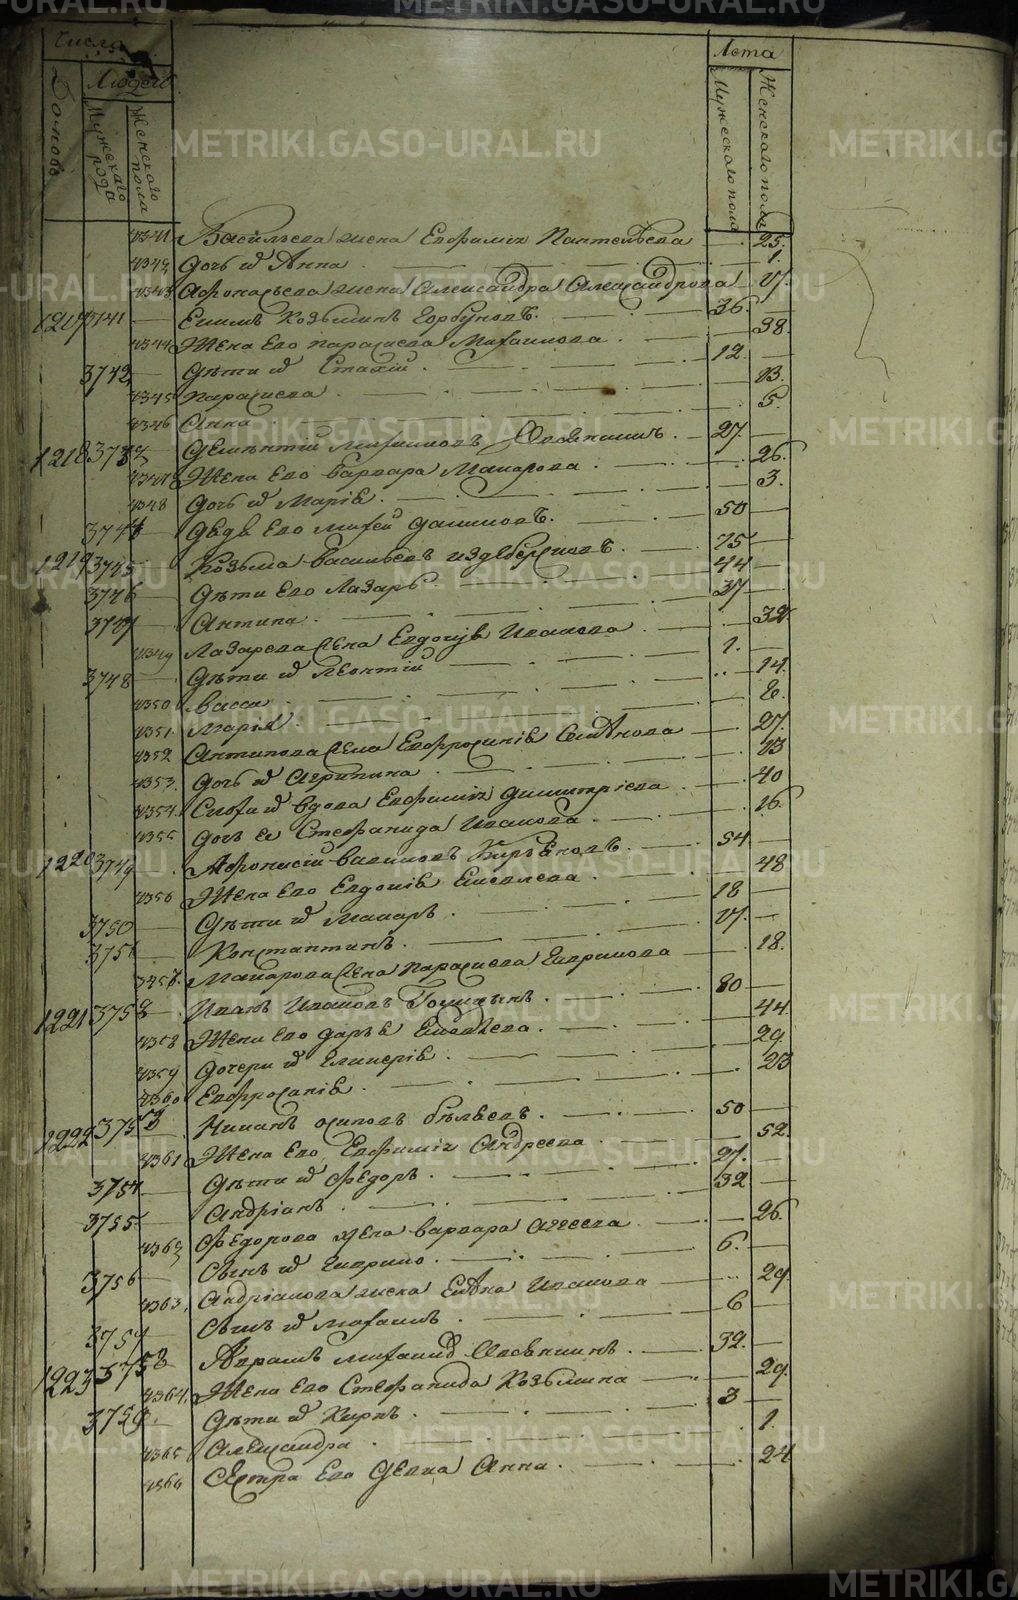 Числа
Людей
Домовъ
Мужескаго рода
Женскаго пола
Лета
Мужескаго пола
Женскаго пола
4341 Васильева жена Евфимия Пантелѣева 25.
4342 Дочь их Анна 1.
4343 Афонасьева жена Александра Александрова 17.
1217 3741 Екимъ Козьминъ Горбуновъ. 36.
4344 Жена его Параскева Михаилова 38.
3742 Дѣти их Стахій 12
4345 Параскева 13.
4346 Анна 5.
1218 3743 Дементій Михаиловъ Овсянкинъ 27
4347 Жена его Варвара Макарова 26.
4348 Дочь их Марія 3.
3744 Дядя его Михей Даниловъ 50
1219 3745 Козьма Васильевъ 75
3746 Дѣти его Лазарь 44
3747 Антипа 37
4349 Лазарева жена Евдокія Иванова 32
3748 Дѣти их Леонтій 1.
4350 Васса 14.
4351 Марія 6.
4352 Антипова жена Евфросинія 27.
4353 Дочь их Агрипина 13
4354 Сноха их вдова Евфимія Димитріева 40
4355 Дочь ея Стефанида Иванова 16.
1220 3749 Афонасій 54
4356 Жена его Евдокія 48
3750 Дѣти их Макаръ 18
3751 Константинъ 17.
4357 Макарова жена Параскева Гаврилова 18.
1221 3752 Иванъ Ивановъ 80
4358 Жена его Дарья 44
4359 Дочери их Гликерія 29.
4360 Евфросинія 23
1222 3753 Осиповъ Бѣляевъ 50
4361 Жена его Евфимія Андреева 52.
3754 Дѣти их Федоръ 27.
3755 Андріанъ 32
4362 Федорова жена Варвара 26.
3756 Сынъ их Гаврило 6.
4363 Андріанова жена Иванова 29
3757 Сынъ их Михаилъ 6
1223 3758 Абрамъ Михаиловъ Овсянкинъ 32.
4364 Жена его Стефанида Козьмина 29.
3759 Дѣти их Кирикъ 3
4365 Александра 1.
4366 Сестра его девка Анна 24